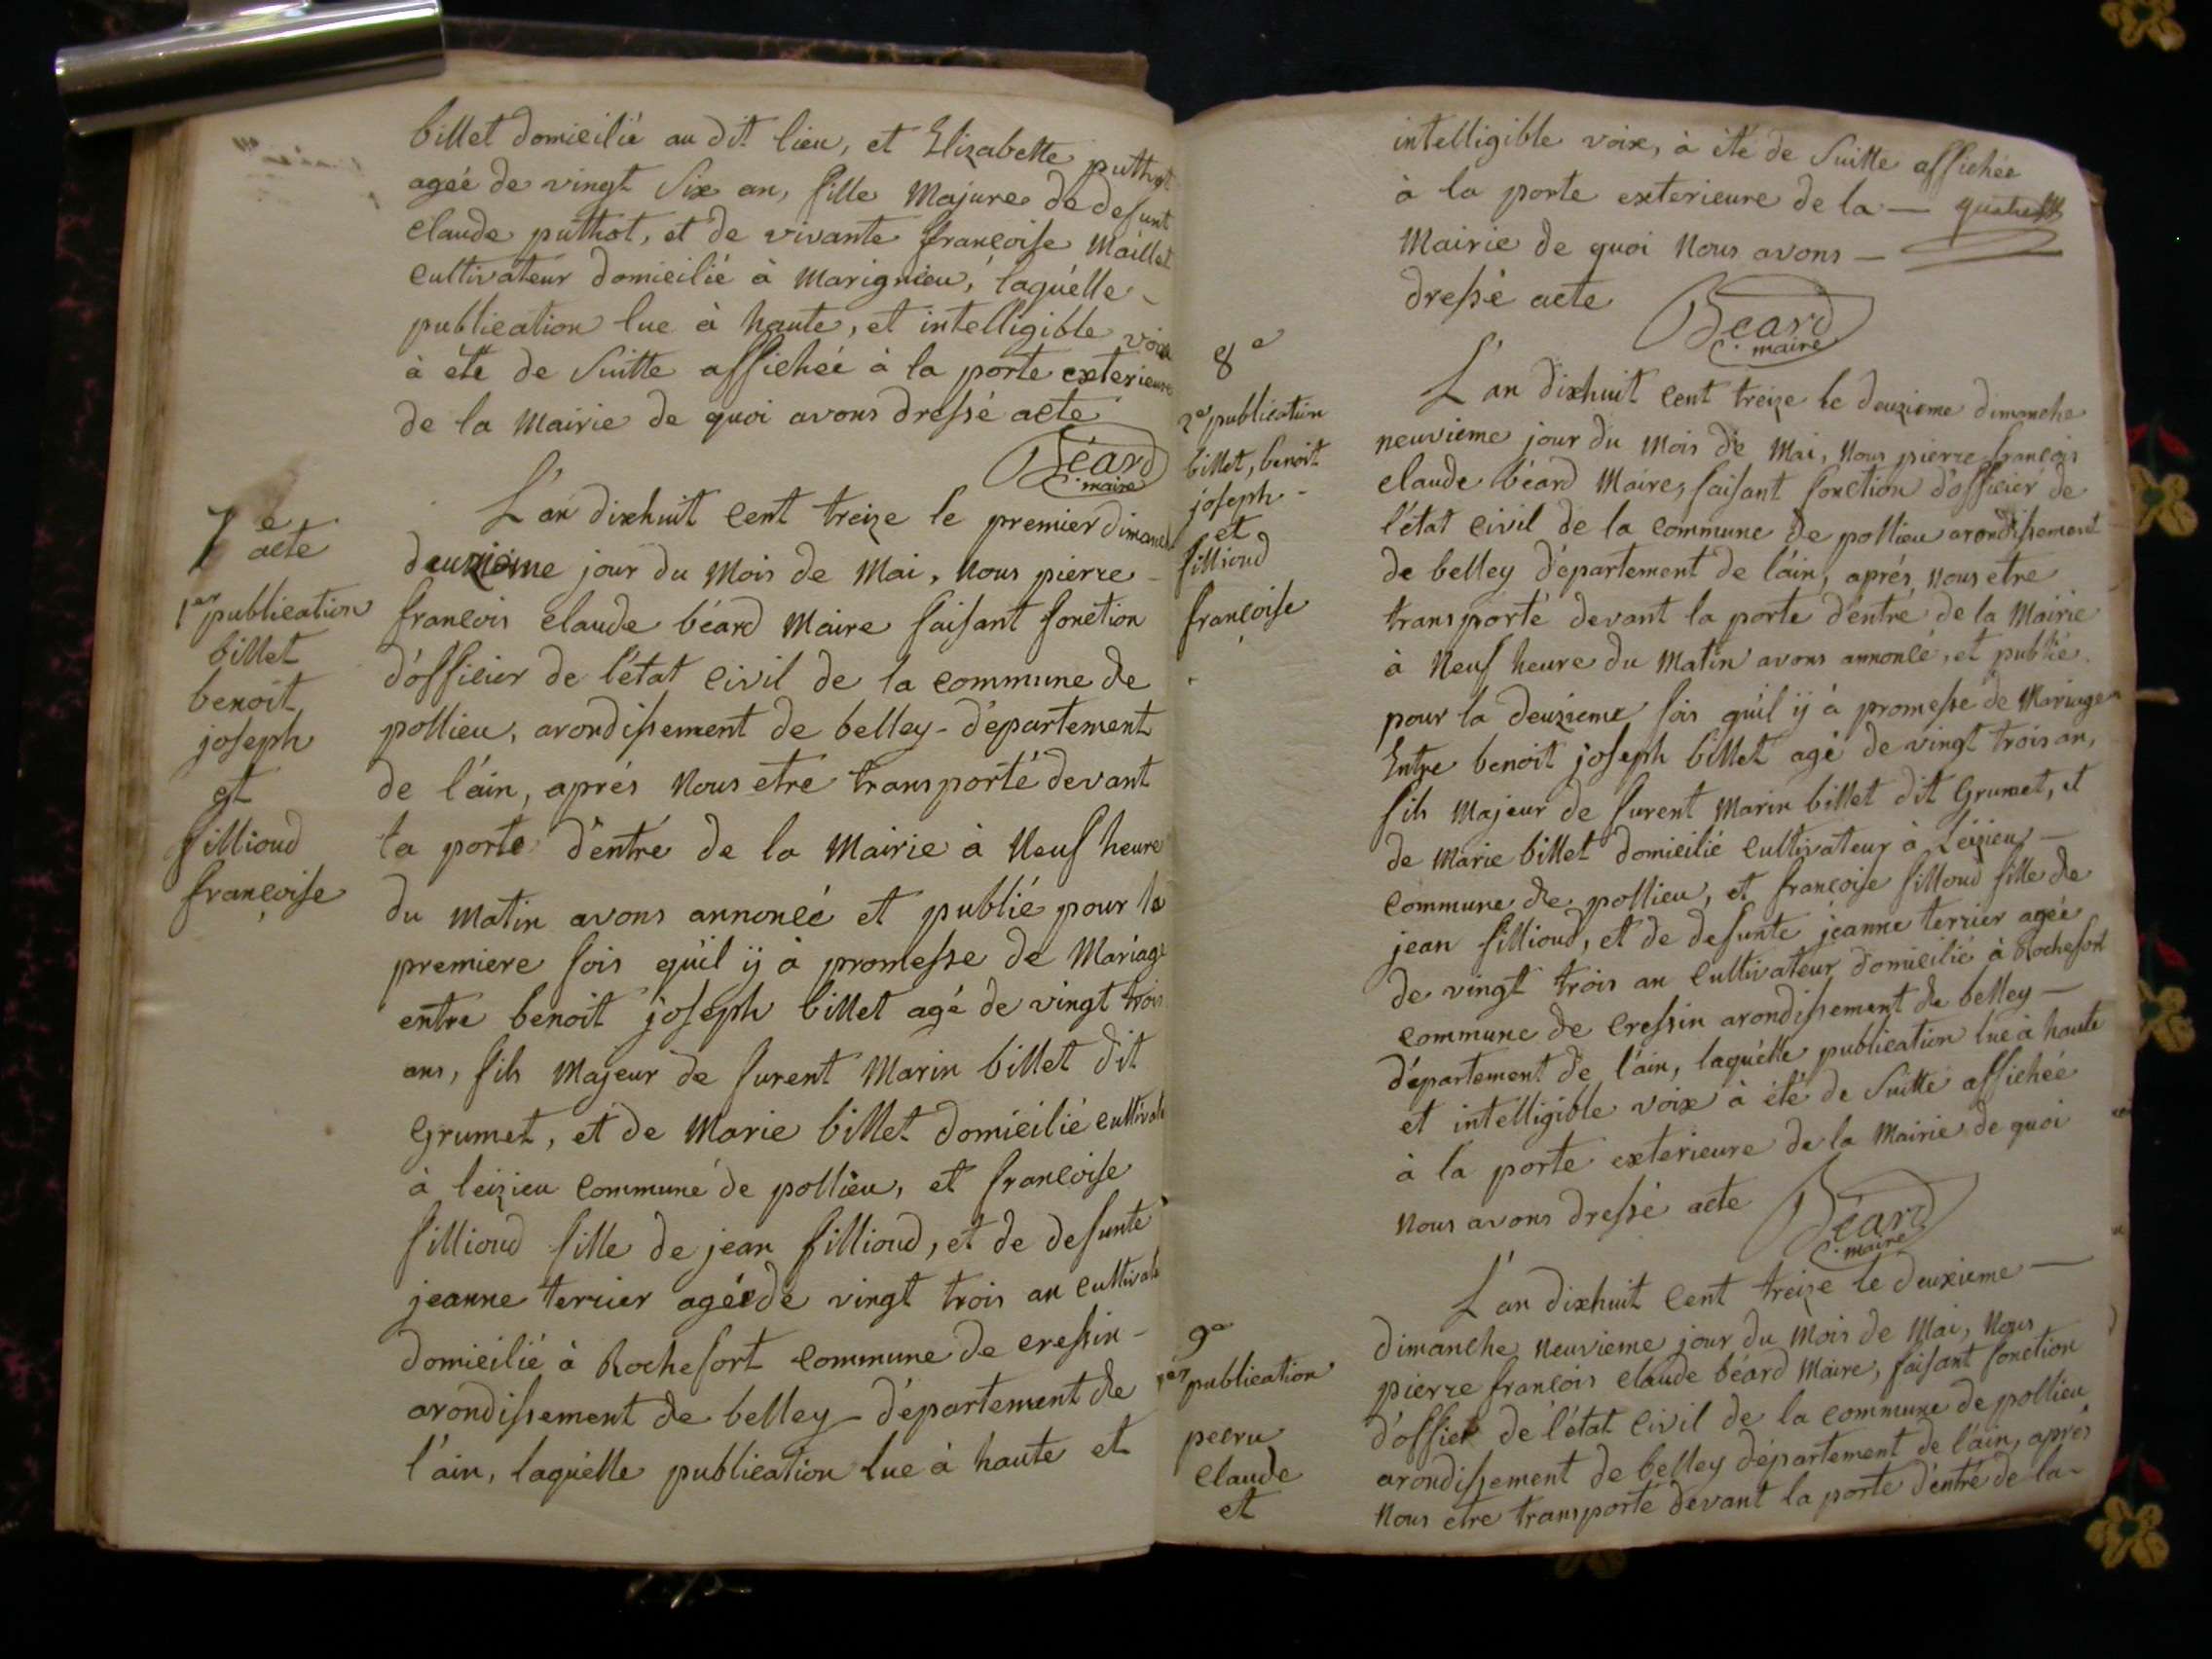 billet domicilié au dit lieu, et Elizabette puthot
ageé de vingt six an, fille majure de defunt
claude puthot, et de vivante françoise maillet
cultivateur domicilié à marignieu, laquélle
publication lue à haute, et intelligible voix
à été de suitte affichéé à la porte exterieure
de la mairie de quoi avons dressé acte
Béard
maire
7e
acte
1er publication
billet
benoit
joseph
et
fillioud
françoise
L'an dixhuit cent treize le premier dimanche
deuzieme jour du mois de mai, nous pierre
françois claude béard maire faisant fonction
d'officier de l'état civil de la commune de
pollieu, arondissement de belley - département
de l'ain, aprés nous etre transporté devant
la porte d'entré de la mairie à neuf heure
du matin avons annoncé et publié pour la
premiere fois qu'il ij à promesse de mariage
entre benoit joseph billet agé de vingt trois
ans, fils majeur de furent marin billet dit
grumet, et de marie billet domicilié cultivate
à leizieu commune de pollieu, et françoise
fillioud fille de jean fillioud, et de defunte
jeanne terrier ageé de vingt trois an cultivate
domicilié à Rochefort commune de cressin -
arondissement de belley - département de
l'ain, laquélle publication lue à haute et
intelligible voix, à été de suitte affichée
à la porte exterieure de la —
mairie de quoi nous avons —
dressé acte
Béard
maire
8e
2e publication
billet, benoit
joseph -
et
fillioud
françoise
L'an dixhuit cent treize le deuzieme dimanche
neuvieme jour du mois de mai, nous pierre françois
claude béard maire, faisant fonction d'officiér de
l'état civil de la commune de pollieu arondissement
de belley département de l'ain, aprés nous etre
transporté devant la porte d'entré de la mairie
à neuf heure du matin avons annoncé, et publié
pour la deuzieme fois qu'il ij à promesse de mariage
Entre benoit joseph billet agé de vingt trois an,
fils majeur de furent marin billet dit grumet, et
de marie billet domicilié cultivateur à Leizieu —
commune de pollieu, et françoise filloud fille de
jean fillioud, et de defunte jeanne terrier agée
de vingt trois an cultivateur domicilié à Rochefort
commune de cressin arondissement de belley —
département de l'ain, laquélle publication lue à haute
et intelligible voix à été de suitte affichéé
à la porte exterieure de la mairie de quoi
nous avons dressé acte
Béard
maire
9e
1er publication
pecru
claude
et
L'an dixhuit cent treize le deuxieme —
dimanche neuvieme jour du mois de mai, nous
pierre françois claude béard maire, faisant fonction
d'officier de l'état civil de la commune de pollieu
arondissement de belley département de l'ain, aprés
nous etre transporté devant la porte d'entré de la -